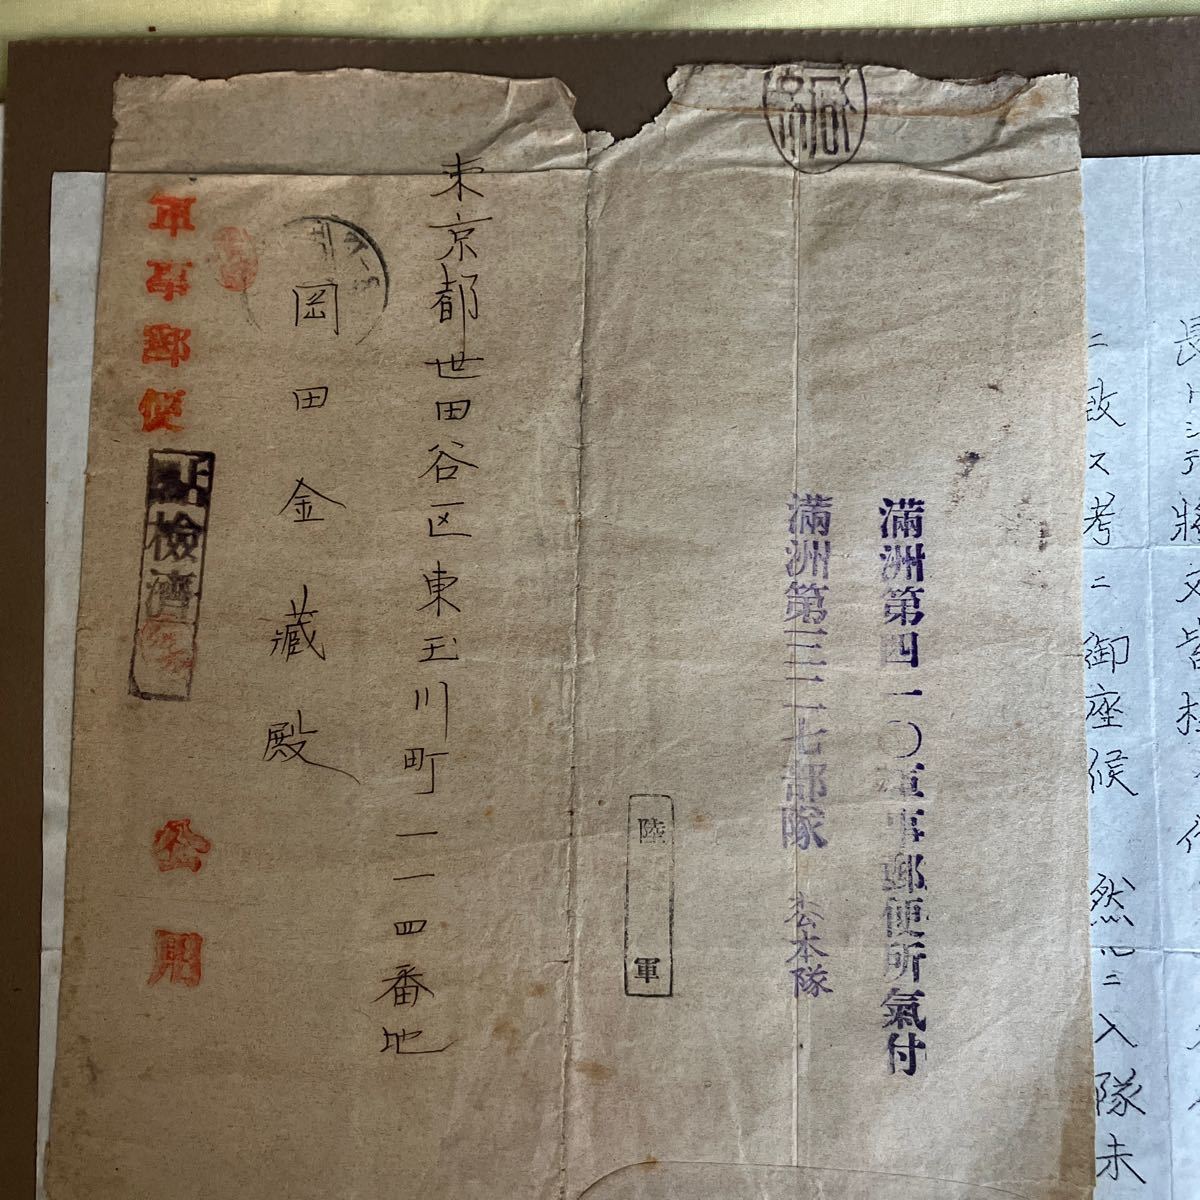 長
ニ致ス考ニ御座候 然
入隊未
緘
満洲第四一〇軍事郵便所氣付
満洲第三二七部隊 松本隊
陸軍
東京都世田谷区東玉川町一一四番地
岡田金蔵殿
軍事郵便
公用
検濟